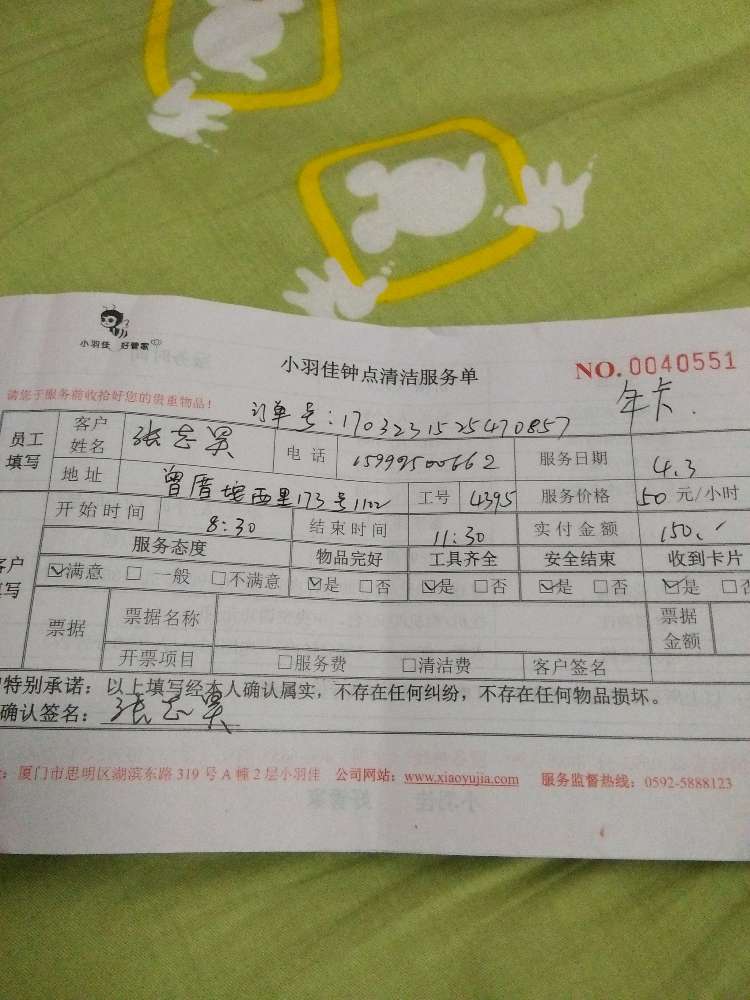 小羽佳 好管家
小羽佳钟点清洁服务单
NO. 0040551
请您于服务前收拾好您的贵重物品!
订单号:1703231525470857
年卡.
员工填写 客户姓名 张志昊 电话 15999500662 服务日期 4.3
地址 曾厝垵西里173号1102 工号 4395 服务价格 50 元/小时
开始时间 8:30 结束时间 11:30 实付金额 150.-
客户填写 服务态度 物品完好 工具齐全 安全结束 收到卡片
☑满意 □一般 □不满意 ☑是 □否 ☑是 □否 ☑是 □否 ☑是 □否
票据 票据名称 票据金额
开票项目 □服务费 □清洁费 客户签名
特别承诺:以上填写经本人确认属实,不存在任何纠纷,不存在任何物品损坏。
确认签名:张志昊
厦门市思明区湖滨东路 319 号 A 幢 2 层小羽佳 公司网站:www.xiaoyujia.com 服务监督热线:0592-5888123